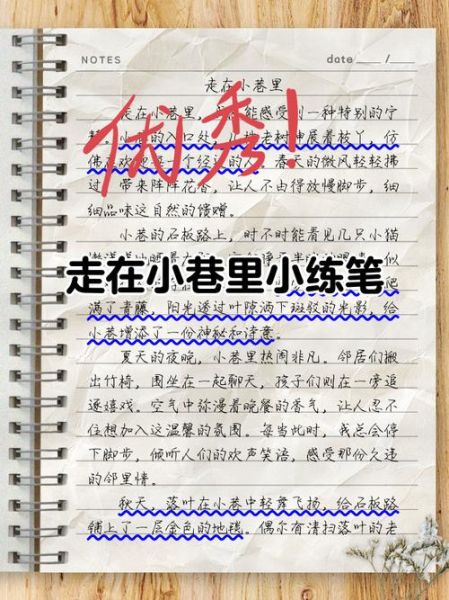 NOTES
date ___ /___
走在小巷里
优秀!
走在小巷里,能感受到一种特别的宁
口处老树伸展着枝丫,仿
佛在欢迎每一个经过的人。春天的微风轻轻拂
过,带来阵阵花香,让人不由得放慢脚步,细
细品味这自然的馈赠。
小巷的石板路上,时不时能看见几只小猫
走在小巷里小练笔
似
爬
满了青藤,阳光透过叶隙洒下斑驳的光影,给
小巷增添了一份神秘和诗意。
夏天的夜晚,小巷里热闹非凡。邻居们搬
出竹椅,围坐在一起聊天,孩子们则在一旁追
逐嬉戏。空气中弥漫着晚餐的香气,让人忍不
住想加入这温馨的氛围。每当此时,我总会停
下脚步,倾听人们的欢声笑语,感受那份久违
的邻里情。
秋天,落叶在小巷中轻舞飞扬,给石板路
铺上了一层金色的地毯。偶尔有清扫落叶的老